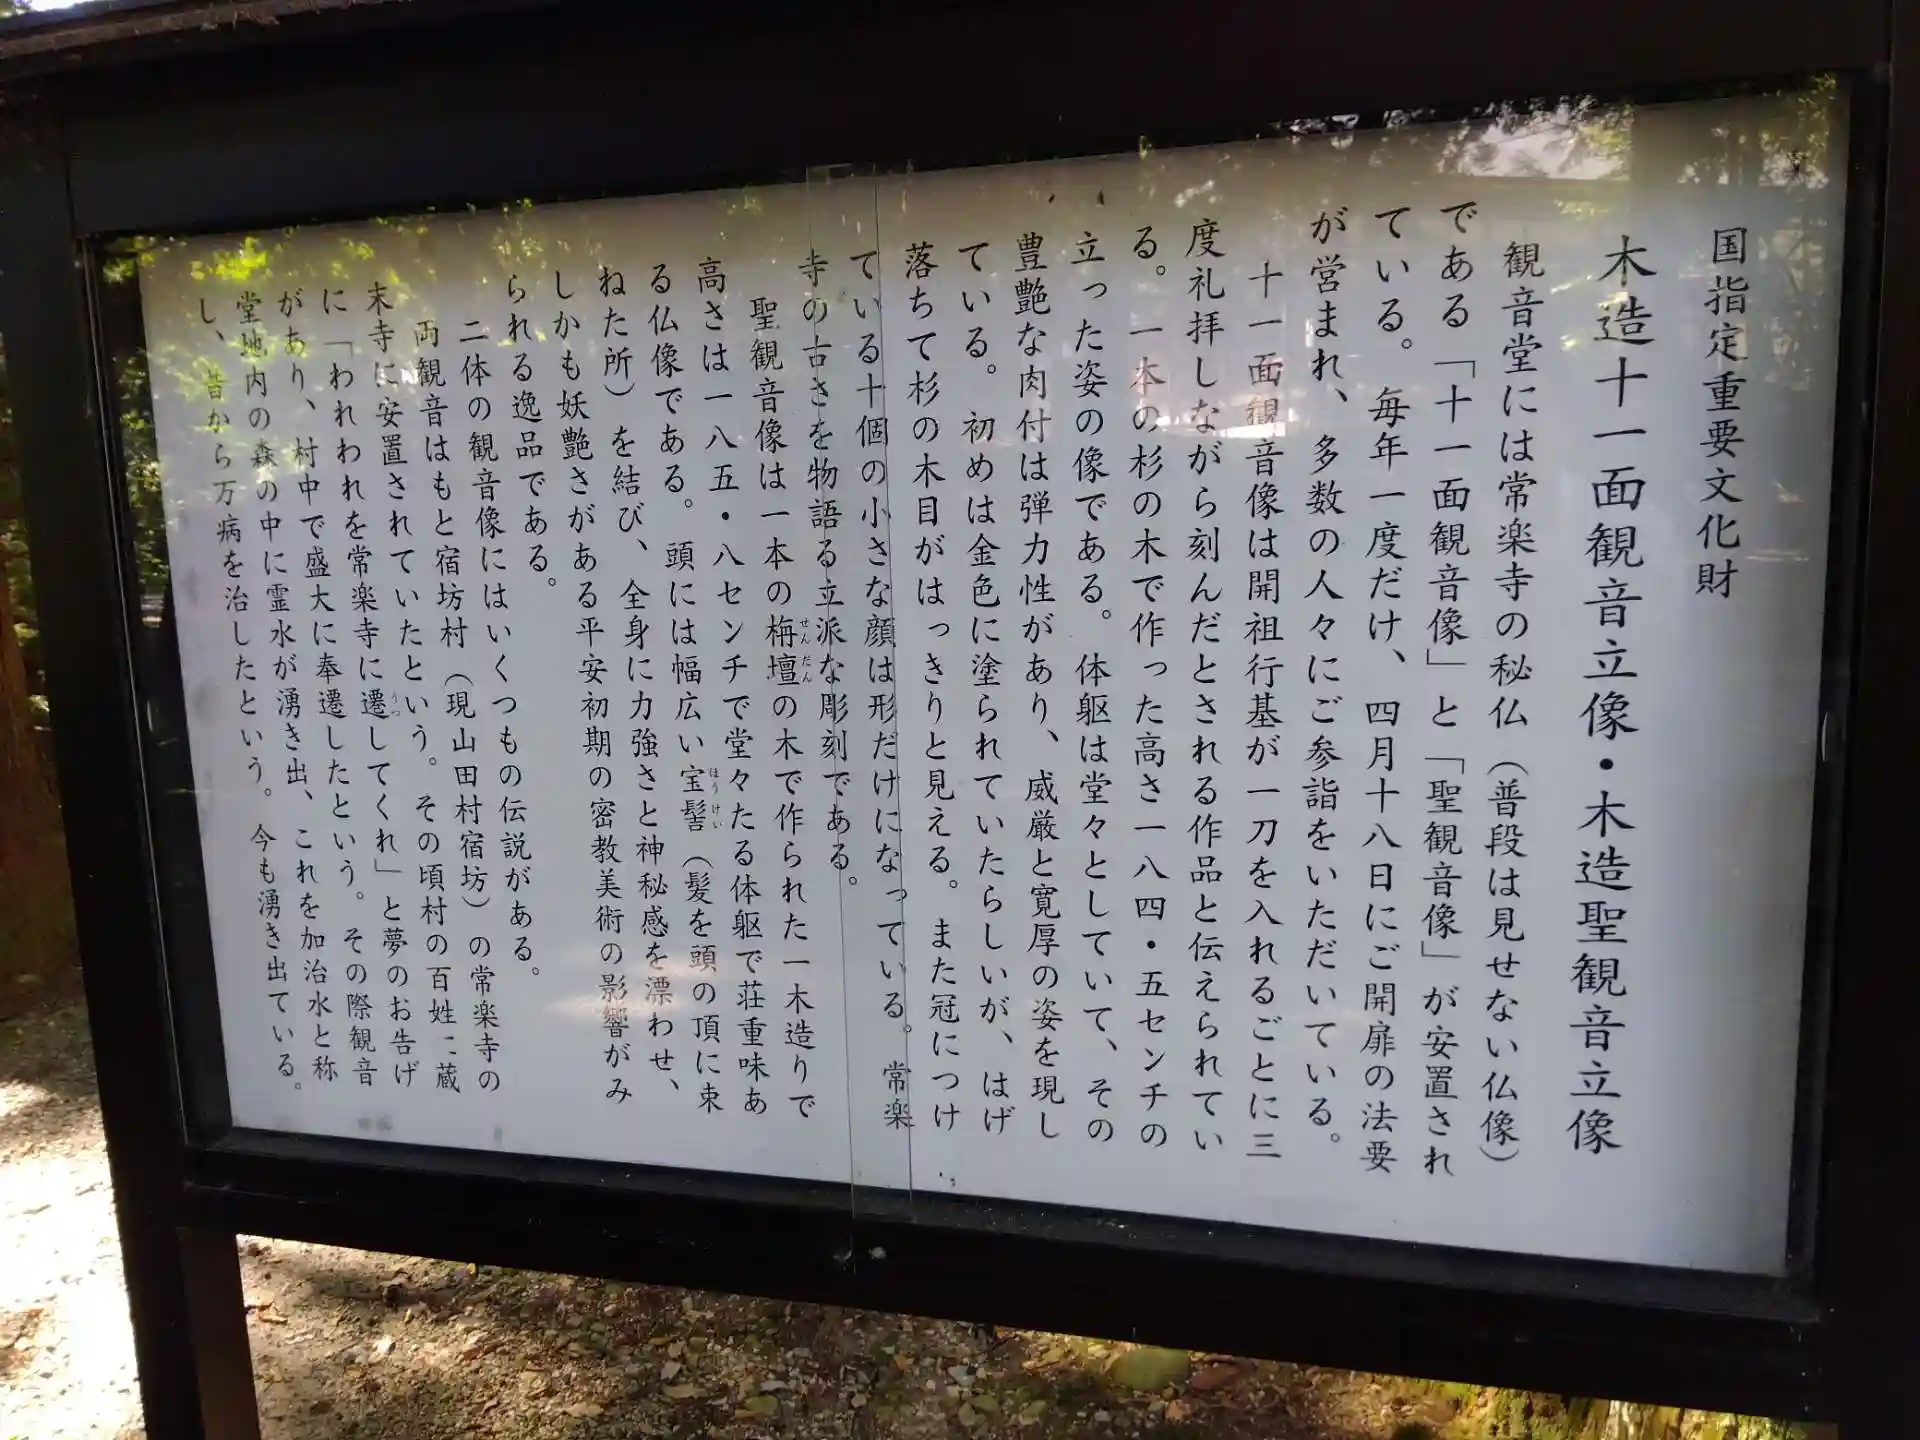 国指定重要文化財
木造十一面観音立像・木造聖観音立像
観音堂には常楽寺の秘仏（普段は見せない仏像）
である「十一面観音像」と「聖観音像」が安置され
ている。毎年一度だけ、四月十八日にご開扉の法要
が営まれ、多数の人々にご参詣をいただいている。
十一面観音像は開祖行基が一刀を入れるごとに三
度礼拝しながら刻んだとされる作品と伝えられてい
る。一本の杉の木で作った高さ一八四・五センチの
立った姿の像である。体躯は堂々としていて、その
豊艶な肉付は弾力性があり、威厳と寛厚の姿を現し
ている。初めは金色に塗られていたらしいが、はげ
落ちて杉の木目がはっきりと見える。また冠につけ
ている十個の小さな顔は形だけになっている。常楽
寺の古さを物語る立派な彫刻である。
聖観音像は一本の栴壇の木で作られた一木造りで
せんだん
高さは一八五・八センチで堂々たる体躯で荘重味あ
る仏像である。頭には幅広い宝髻（髪を頭の頂に束
ほうけい
ねた所）を結び、全身に力強さと神秘感を漂わせ、
しかも妖艶さがある平安初期の密教美術の影響がみ
られる逸品である。
二体の観音像にはいくつもの伝説がある。
両観音はもと宿坊村（現山田村宿坊）の常楽寺の
末寺に安置されていたという。その頃村の百姓仁蔵
に「われわれを常楽寺に遷してくれ」と夢のお告げ
うつ
があり、村中で盛大に奉遷したという。その際観音
堂地内の森の中に霊水が湧き出、これを加治水と称
し、昔から万病を治したという。今も湧き出ている。